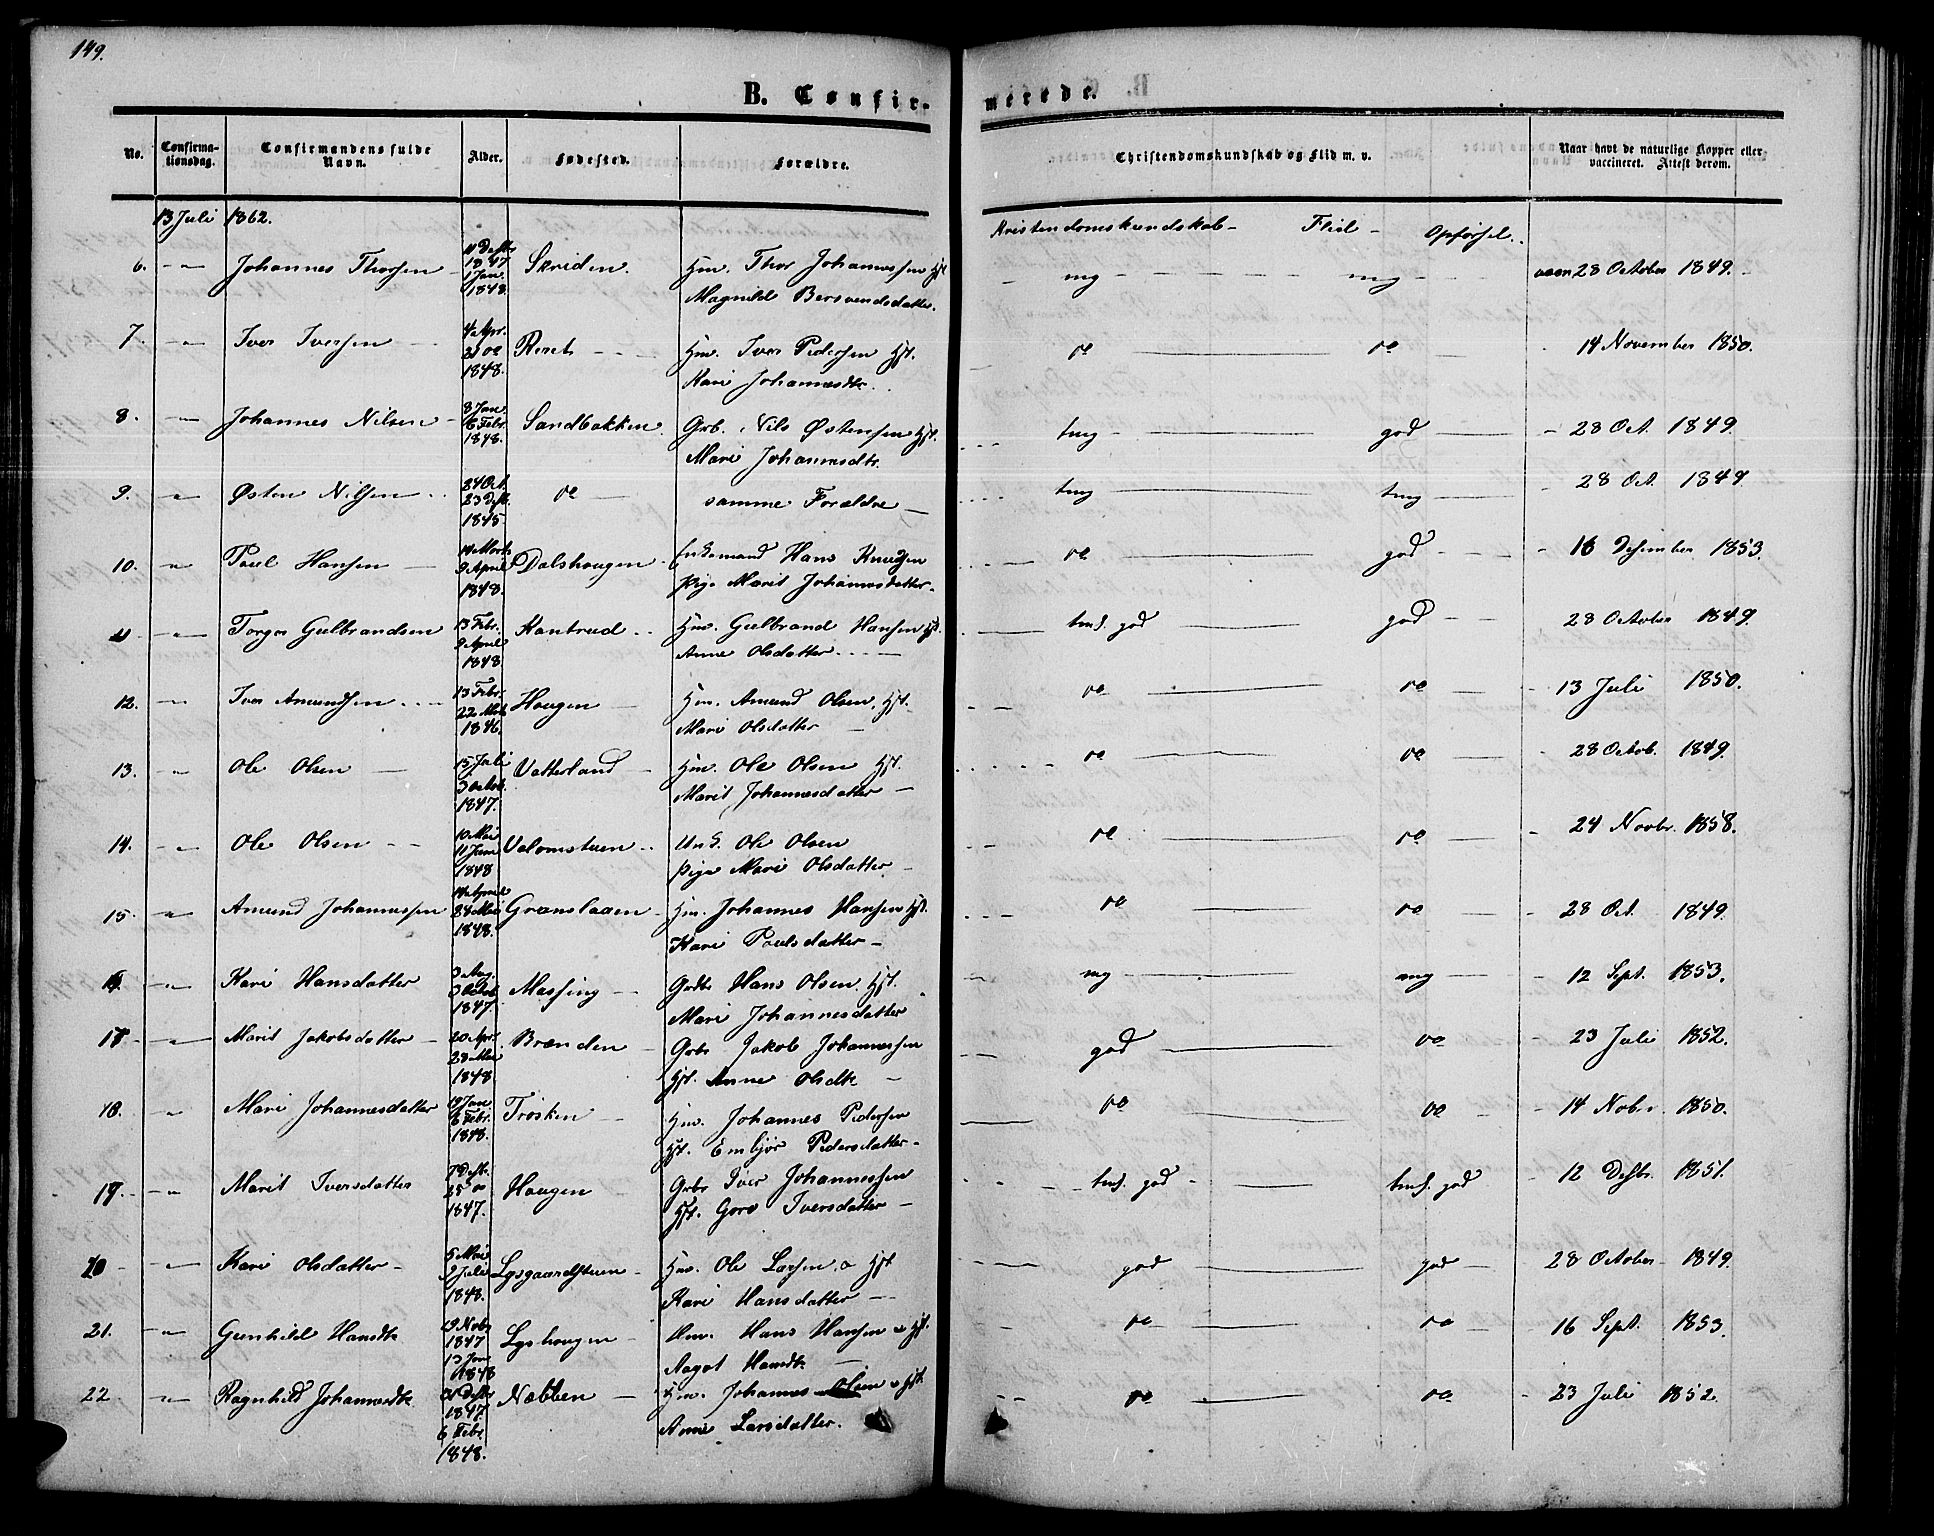 149.
B. Confirmerede.
No. Confirmationsdag. Confirmandens fulde Navn. Alder. Fødested. Forældre. Christendomskundskab og Flid m. v. Naar havt de naturlige Kopper eller vaccineret. Attest derom.
13 Juli 1862. Kristendomskundskab - Flid - Opførsel.
6. -"- Johannes Thorsen 1847 1 Jan. 1848. Skriden. Hm. Thor Johannessen Hst. Magnild Bersvendsdatter. mg mg vacc 28 October 1849.
7. -"- Iver Iversen 4 Apr. 1848. Reret Hm. Iver Pedersen Hst. Kari Johannesdtr. do do 14 November 1850.
8. -"- Johannes Nilsen 8 Jan. 6 Febr. 1848. Sandbakken Grb. Nils Østensen Hst. Mari Johannesdtr. tmg god 28 Oct. 1849.
9. -"- Østen Nilsen 24 Oct. 23 Dsbr. 1845 do samme Forældre tmg tmg 28 Oct. 1849.
10. -"- Poul Hansen 9 April 1848. Dalshougen Enkemand Hans Knudsen Pige Marit Johannesdatter. do god 16 Desember 1853.
11 -"- Torger Gulbrandsen 13 Febr. 9 April 1848 Kantrud Hm. Gulbrand Hansen Hst. Anne Olsdatter tms. god god 28 October 1849.
12. -"- Iver Amundsen 13 Febr. 22 Mrts 1846. Hougen Hm. Amund Olsen Hst. Mari Olsdatter do do 13 Juli 1850.
13. -"- Ole Olsen 15 Juli 3 Octob. 1847. Vatterland Hm. Ole Olsen Hst. Marit Johannesdatter do do 28 Octob. 1849.
14. -"- Ole Olsen 10 Mai 11 Juni 1848 Valomstuen Ung. Ole Olsen Pige Mari Olsdatter do do 24 Novbr. 1858.
15. -"- Amund Johannessen 14 April 28 Mai 1848. Granslaaen Hm. Johannes Hansen Hst. Kari Poulsdatter do do 28 Oct. 1849.
16. -"- Kari Hansdatter 3 Aug. 3 Octob 1847. Massing Grdb. Hans Olsen Hst. Mari Johannesdatter mg mg 12 Sept. 1853.
17. -"- Marit Jakobsdatter 20 Apr. 28 Mai 1848. Brænden Grbr Jakob Johannessen Hst. Anne Olsdtr god do 23 Juli 1852.
18. -"- Mari Johannesdatter 19 Jan 6 Febr. 1848. Trøsken Hm. Johannes Pedersen Hst. Embjør Pedersdatter do do 14 Nobr. 1850.
19. -"- Marit Iversdatter 7 Dsbr. 25 do 1847. Hougen Grbr Iver Johannessen Hst. Goro Iversdatter tms. god tms. god 12 Dsbr. 1851.
20 -"- Kari Olsdatter 5 Mai 2 Juli 1848. Lysgaardstuen Hm. Ole Larsen o Hst Kari Hansdatter god god 28 October 1849.
21. -"- Gunhild Hansdtr 19 Nobr 1847 1848 Lyshougen Hm. Hans Hansen o Hst. Aagot Hansdtr do do 16 Sept. 1853.
22. -"- Ragnhild Johannesdtr Dsbr 1847. 6 Febr. 1848. Næbben Hm. Johannes Olsen o Hst. Anne Larsdatter. do do 23 Juli 1852.